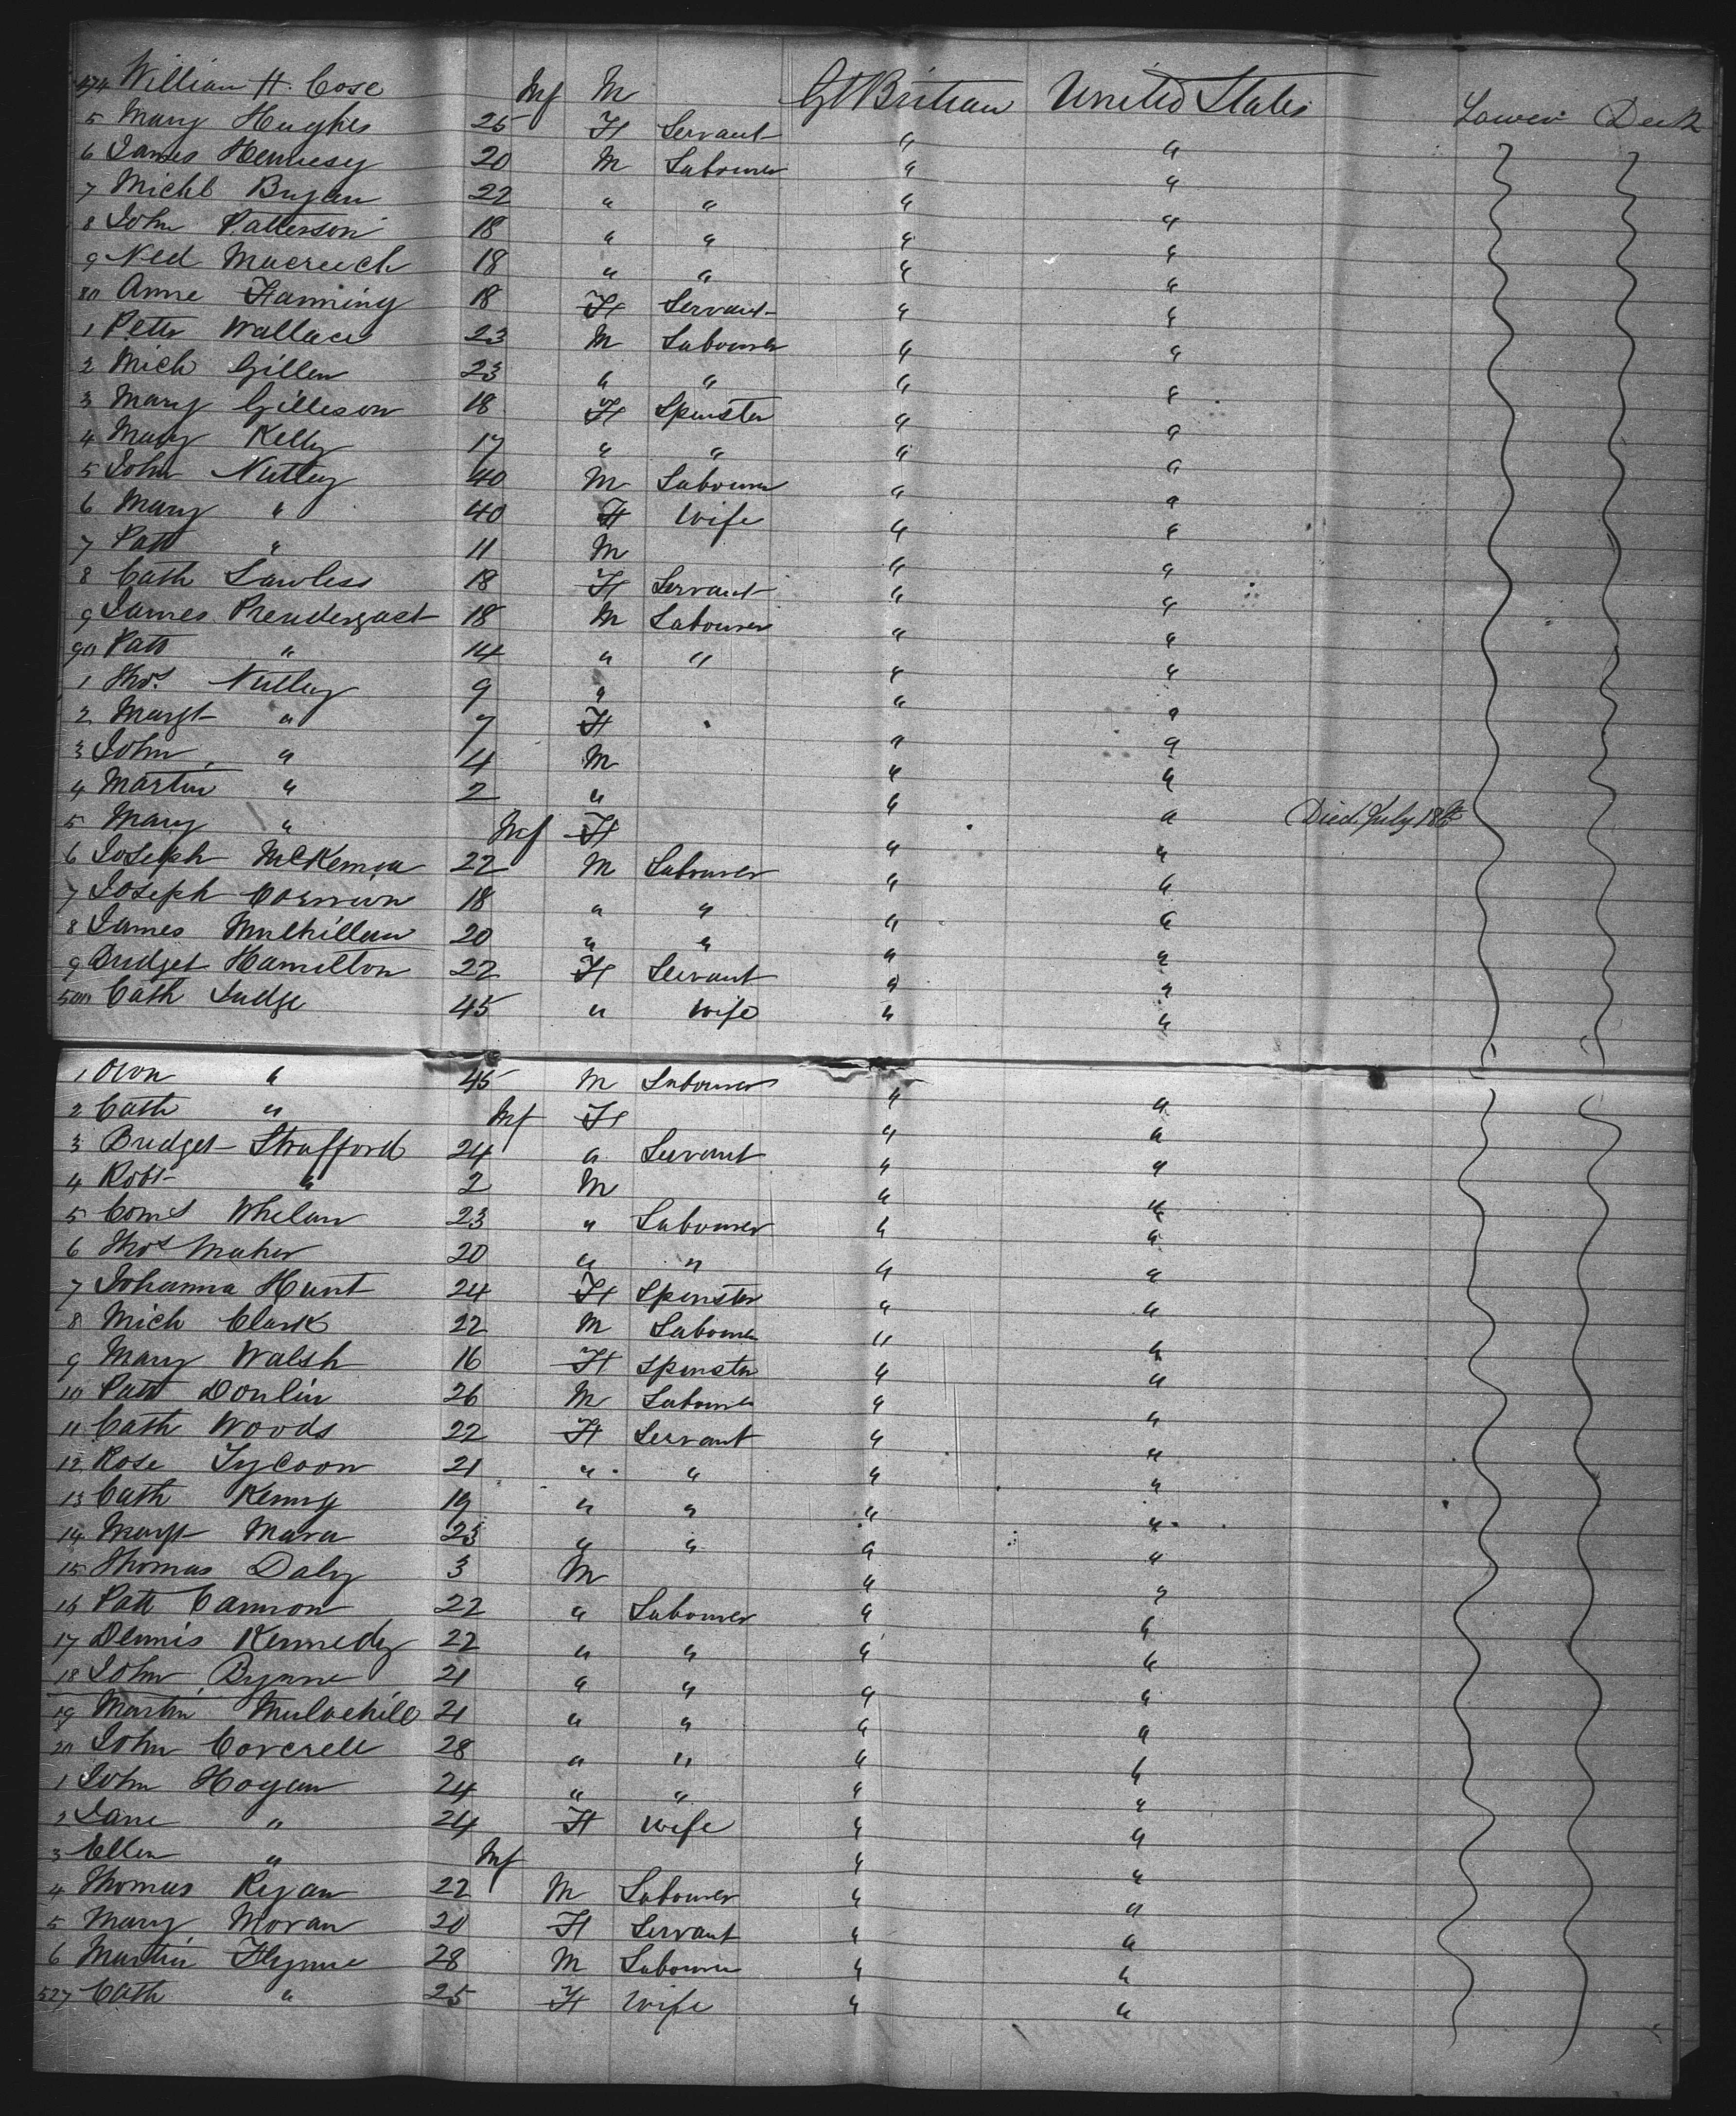 474 William H. Cose Inf M Gt Britian United States Lower Deck
5 Mary Hughes 25 F Servant " "
6 James Hennesy 20 M Labourer " "
7 Michl Bryan 22 " " " "
8 John Patterson 18 " " " "
9 Ned 18 " " " "
80 Anne Fanning 18 F Servant " "
1 Peter Wallace 23 M Labourer " "
2 Mich Gillen 23 " " " "
3 Mary Gilleson 18 F Spinster " "
4 Mary Kelly 17 " " " "
5 John Nutley 40 M Labourer " "
6 Mary " 40 F Wife " "
7 Patt " 11 M " "
8 Cath Lawless 18 F Servant " "
9 James Prendergast 18 M Labourer " "
90 Patt " 14 " " " "
1 Thos Nutley 9 " " "
2 Margt " 7 F " "
3 John " 4 M " "
4 Martin " 2 " " "
5 Mary " Inf F " " Died July 18th
6 Joseph McKenna 22 M Labourer " "
7 Joseph 18 " " " "
8 James 20 " " " "
9 Bridget Hamilton 22 F Servant " "
500 Cath Judge 45 " Wife " "
1 Own " 45 M Labourer " "
2 Cath " Inf F " "
3 Bridget Strafford 24 " Servant " "
4 Robt " 2 M " "
5 Whelan 23 " Labourer " "
6 Thos Maher 20 " " " "
7 Johanna Hunt 24 F Spinster " "
8 Mich Clark 22 M Labourer " "
9 Mary Walsh 16 F Spinster " "
10 Patt Donlin 26 M Labourer " "
11 Cath Woods 22 F Servant " "
12 Rose Tycoon 21 " " " "
13 Cath Kenny 19 " " " "
14 Margt Mara 23 " " " "
15 Thomas Daly 3 M " "
16 Patt Cannon 22 " Labourer " "
17 Dennis Kennedy 22 " " " "
18 John Byrne 21 " " " "
19 Martin Mulvehill 21 " " " "
20 John Corcrell 28 " " " "
1 John Hogan 24 " " " "
2 Jane " 24 F Wife " "
3 Ellen " Inf " "
4 Thomas Ryan 22 M Labourer " "
5 Mary Moran 20 F Servant " "
6 Martin Flynne 28 M Labourer " "
527 Cath " 25 F Wife " "